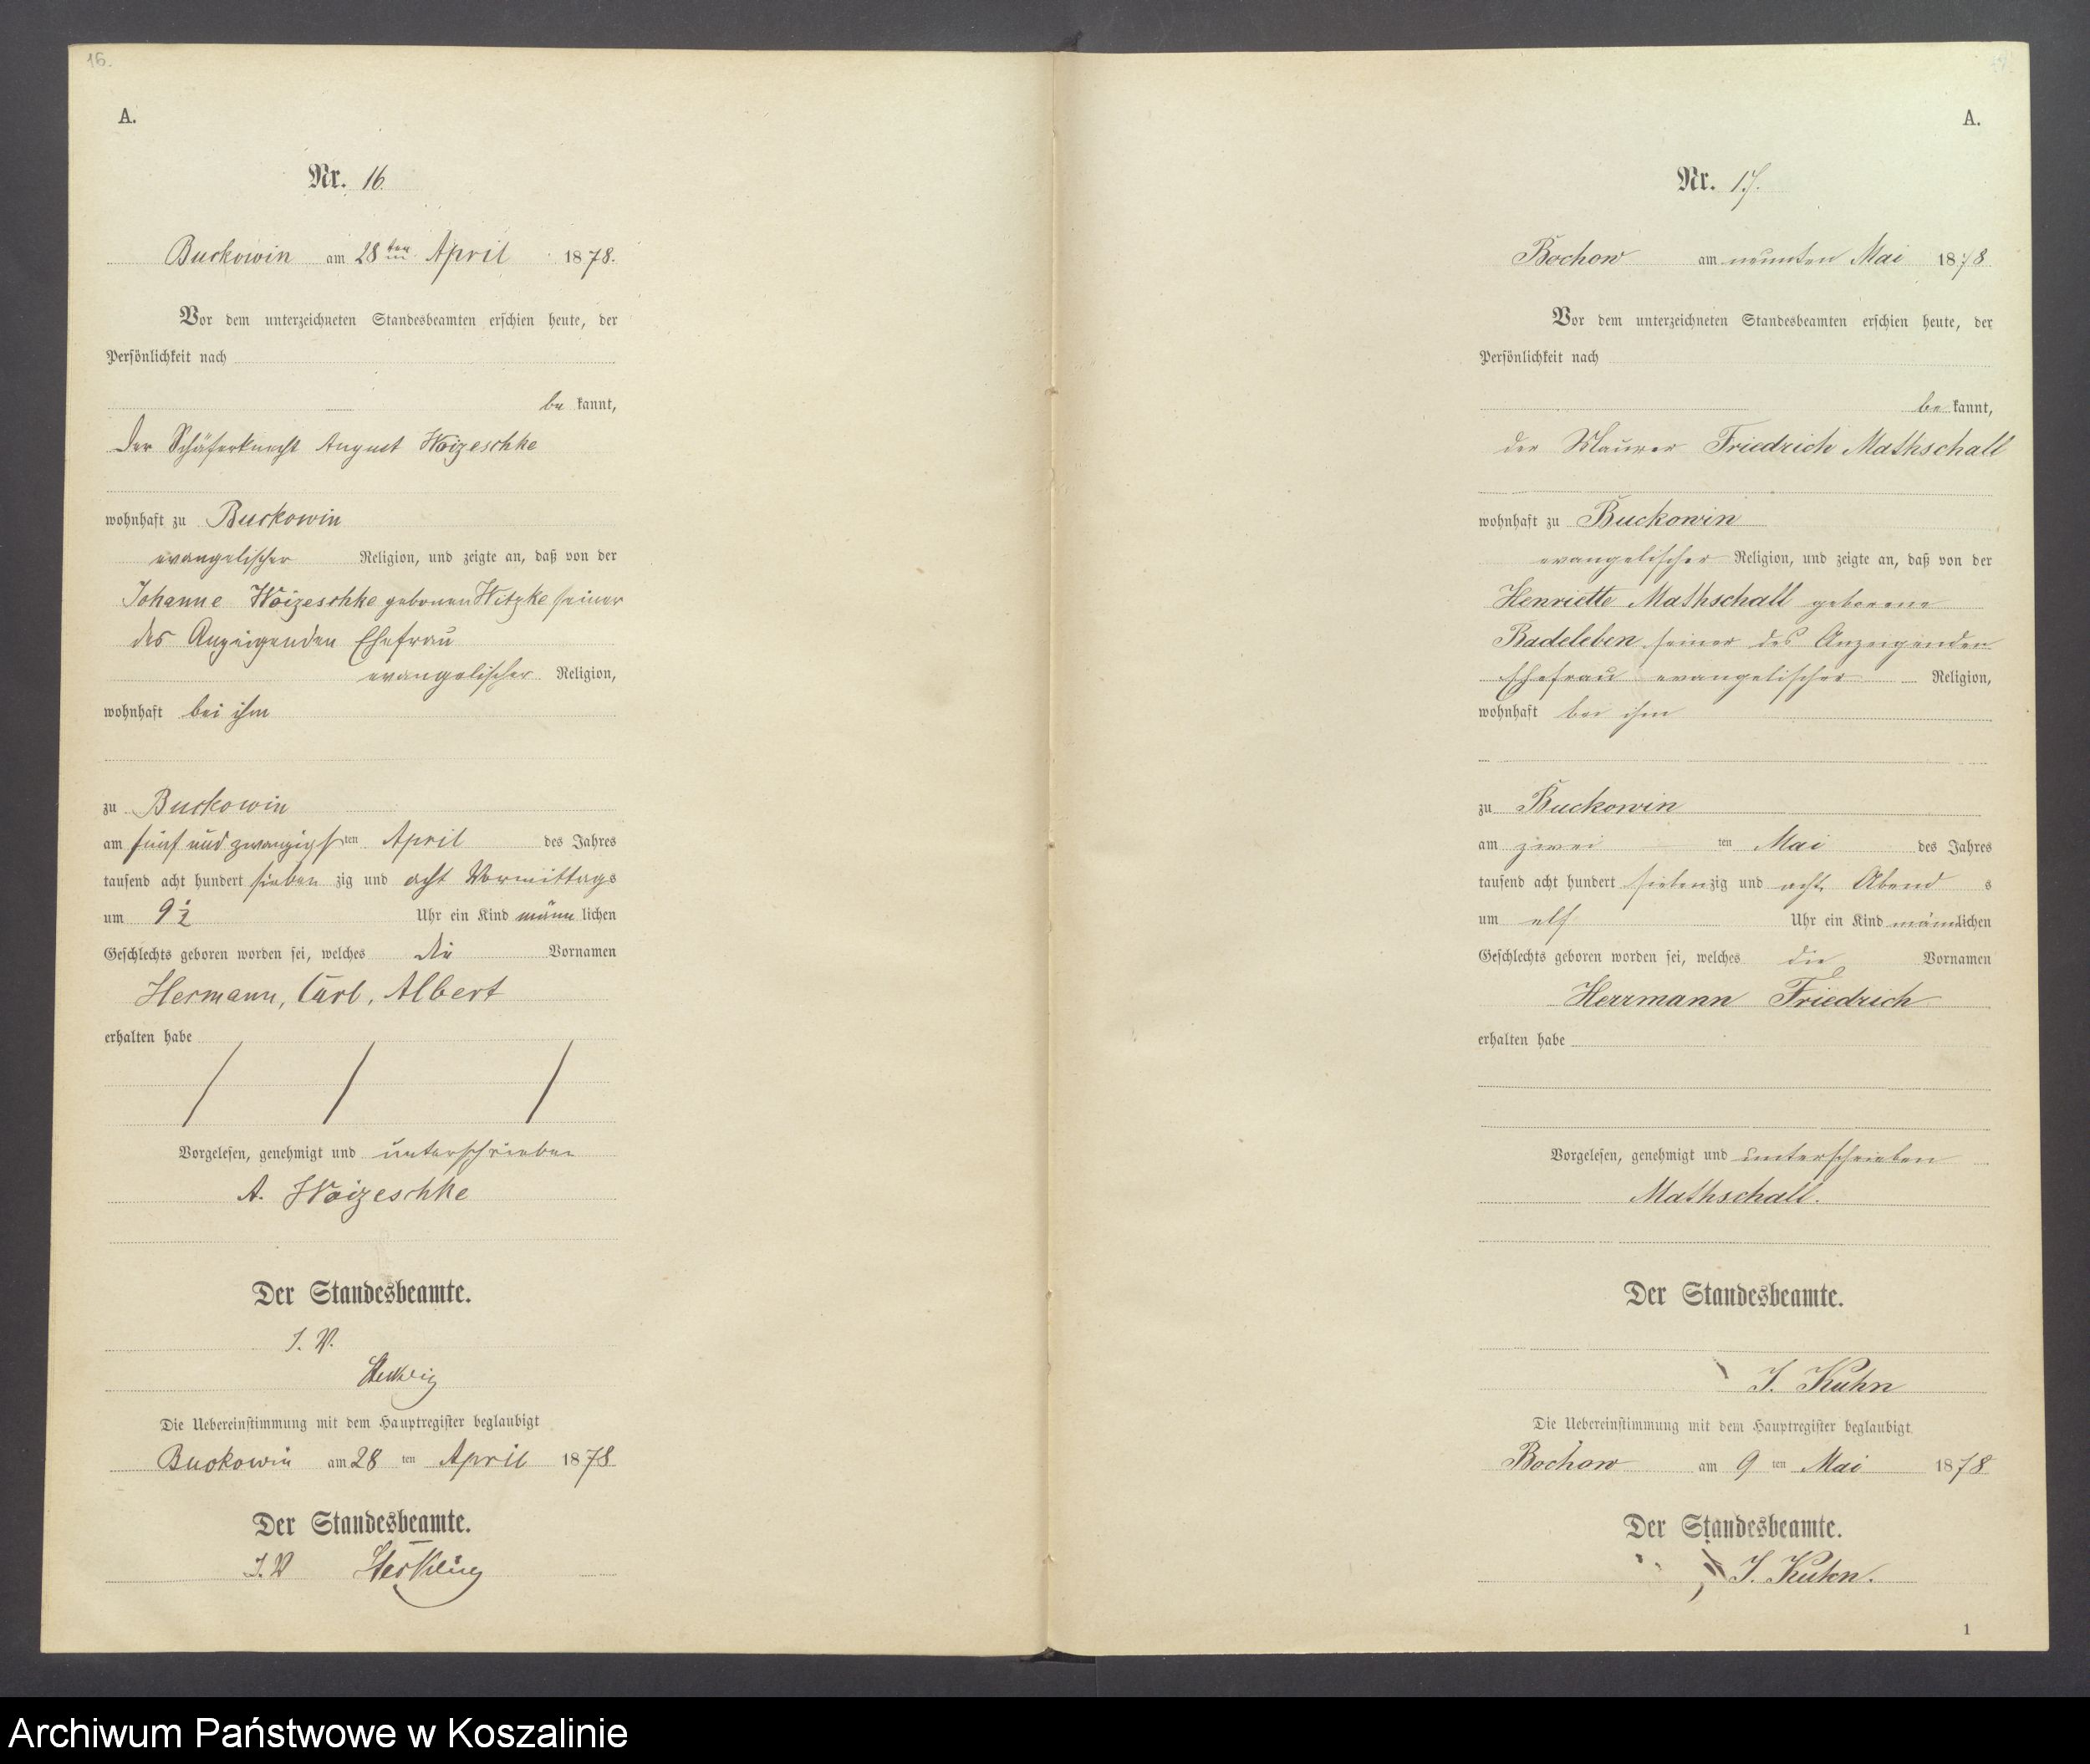 16.
A.
Nr. 16
Buckowin am 28ten April 1878.
Vor dem unterzeichneten Standesbeamten erschien heute, der
Persönlichkeit nach
be kannt,
der Schäferknecht August Woizeschke
wohnhaft zu Buckowin
evangelischer Religion, und zeigte an, daß von der
Johanne Woizeschke gebornen Witzke seiner
des Anzeigenden Ehefrau
evangelischer Religion,
wohnhaft bei ihm
zu Buckowin
am fünf und zwanzigsten April des Jahres
tausend acht hundert sieben zig und acht Vormittags
um 9½ Uhr ein Kind männ lichen
Geschlechts geboren worden sei, welches die Vornamen
Hermann, Carl, Albert
erhalten habe
Vorgelesen, genehmigt und unterschrieben
A. Woizeschke
Der Standesbeamte.
I. V.
Die Uebereinstimmung mit dem Hauptregister beglaubigt
Buckowin am 28 ten April 1878
Der Standesbeamte.
I. V
A.
Nr. 17.
Bochow am neunten Mai 1878
Vor dem unterzeichneten Standesbeamten erschien heute, der
Persönlichkeit nach
be kannt,
der Maurer Friedrich Mathschall
wohnhaft zu Buckowin
evangelischer Religion, und zeigte an, daß von der
Henriette Mathschall geborene
Badeleben seiner des Anzeigenden
Ehefrau evangelischer Religion,
wohnhaft bei ihm
zu Buckowin
am zwei ten Mai des Jahres
tausend acht hundert siebenzig und acht Abend s
um elf Uhr ein Kind männlichen
Geschlechts geboren worden sei, welches die Vornamen
Herrmann Friedrich
erhalten habe
Vorgelesen, genehmigt und unterschrieben
Mathschall.
Der Standesbeamte.
J. Kuhn
Die Uebereinstimmung mit dem Hauptregister beglaubigt
Bochow am 9 ten Mai 1878
Der Standesbeamte.
J. Kuhn.
1
Archiwum Państwowe w Koszalinie